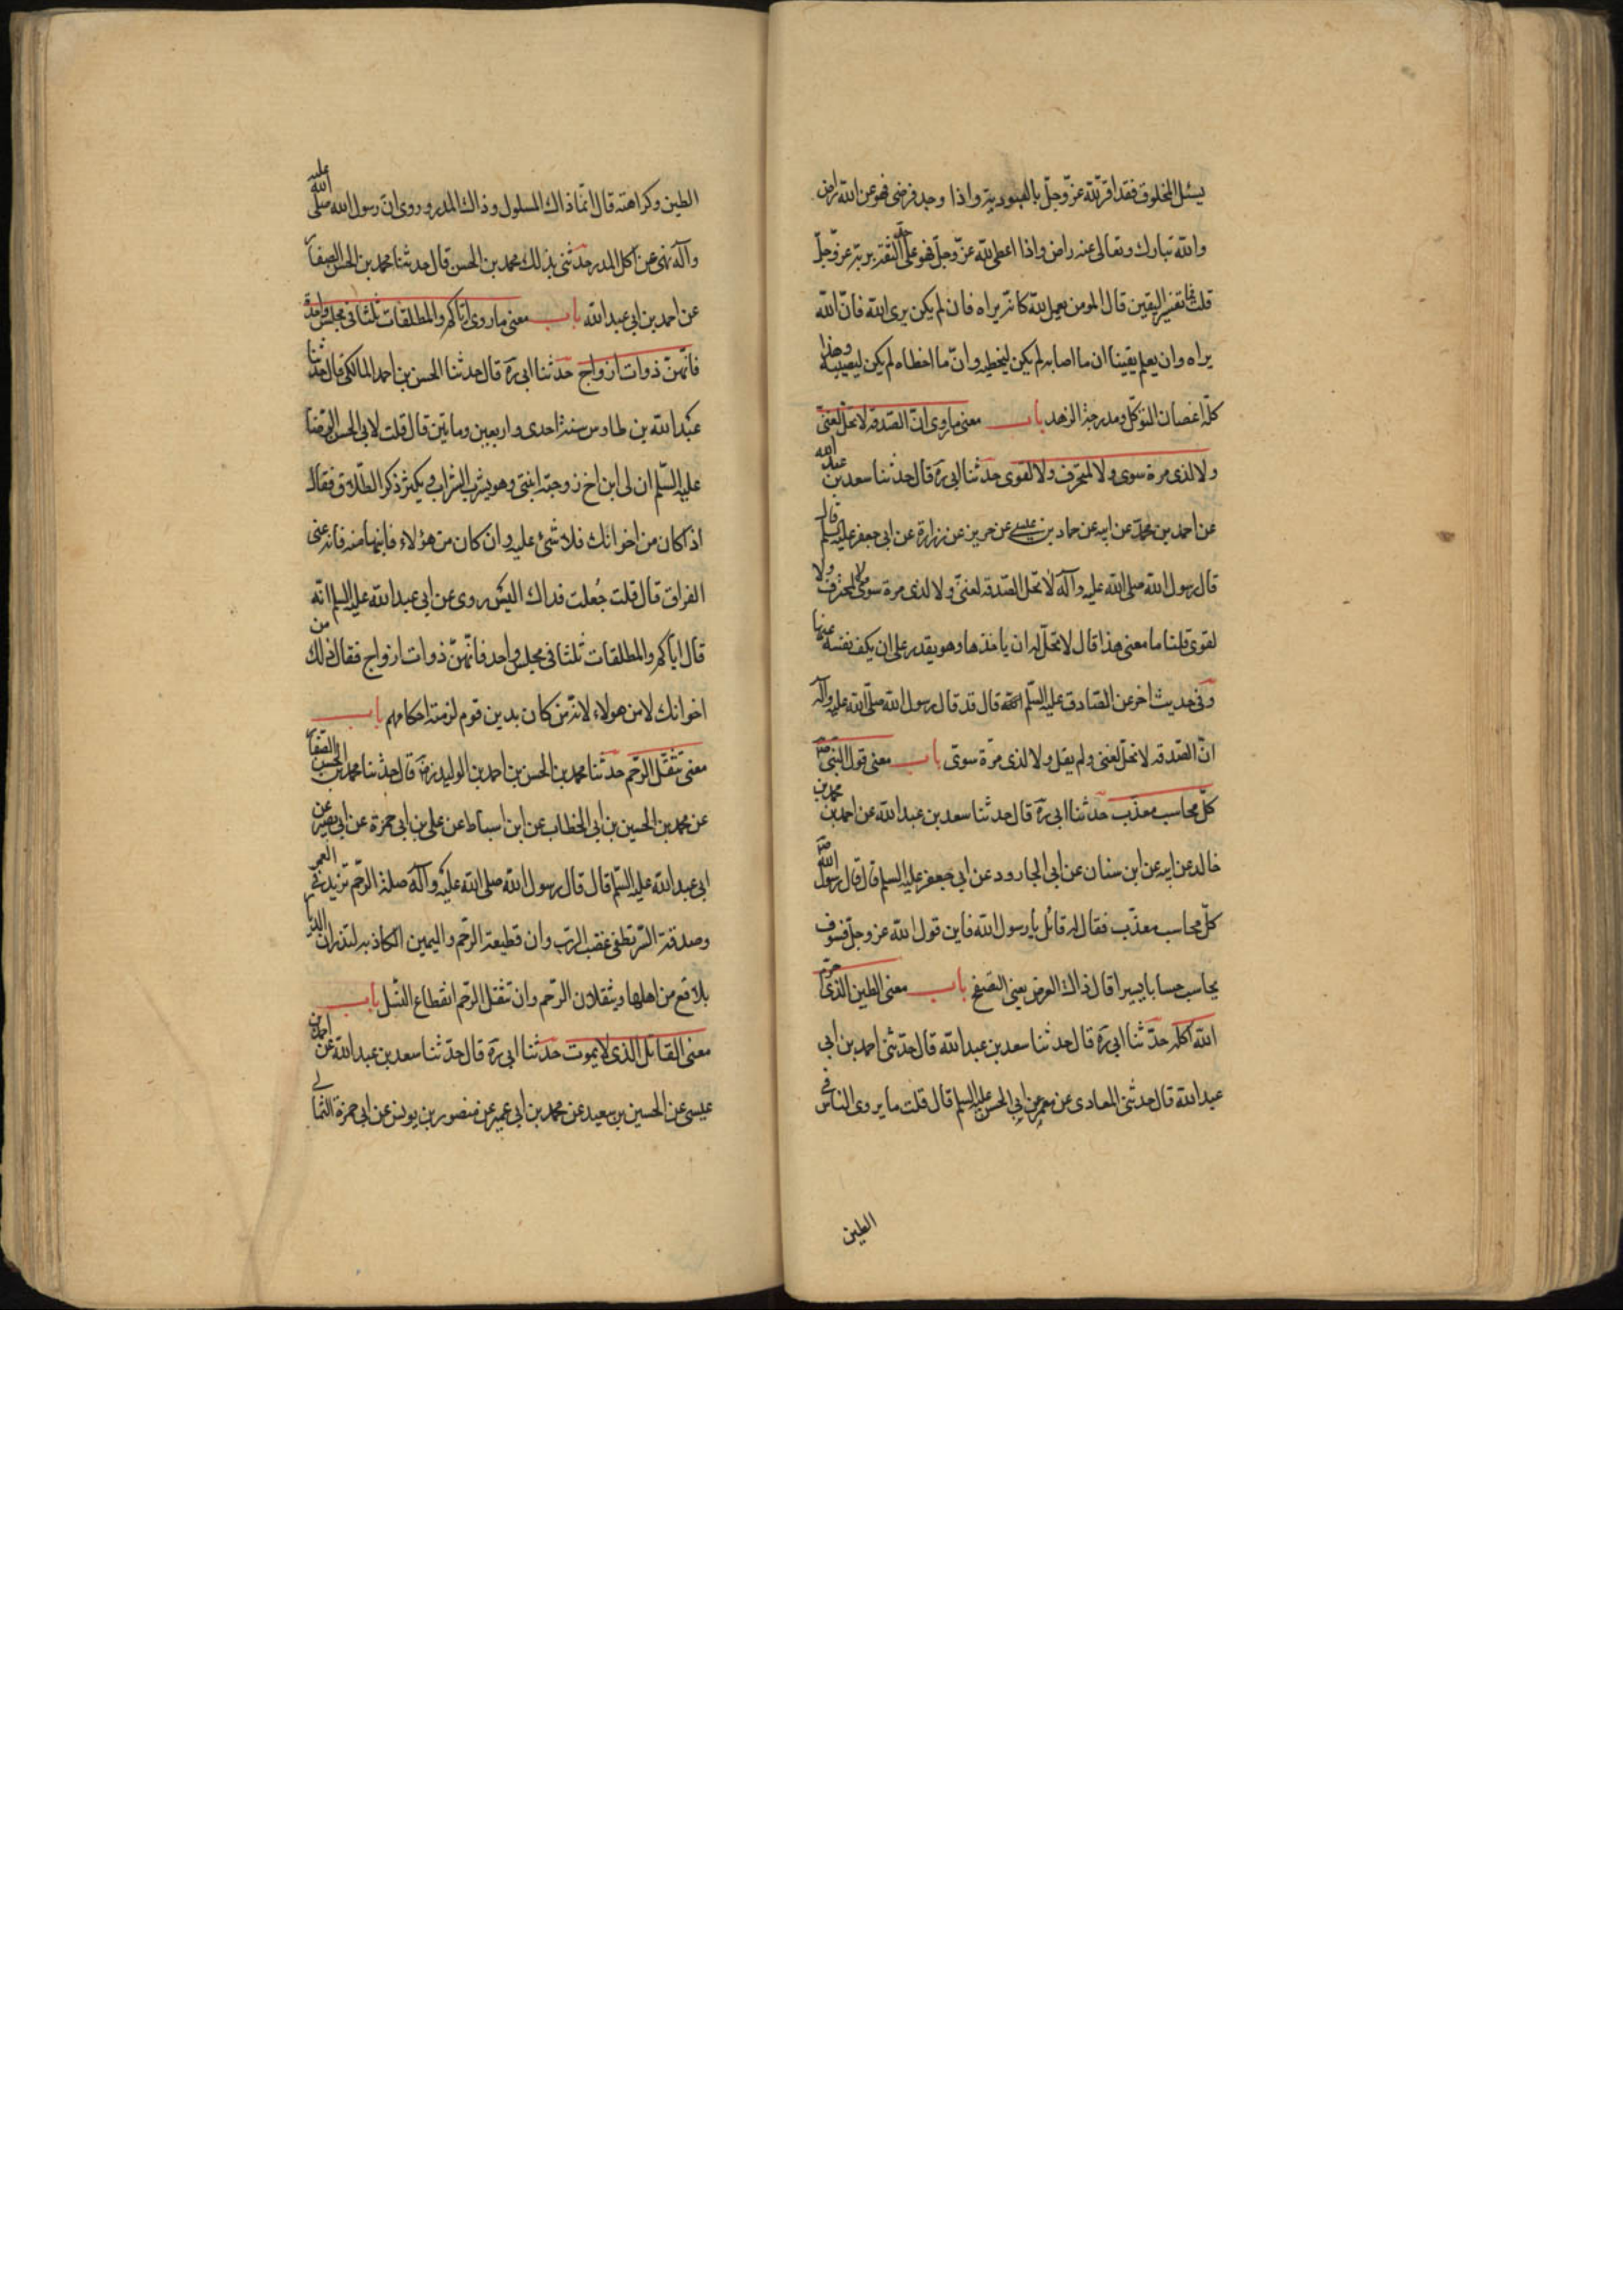 يسئل المخلوق فقد اقر لله عز وجل بالعبودية واذا وجد فرضى فهو عن الله راض
والله تبارك وتعالى عنه راض واذا اعطى لله عز وجل فهو على حد الثقة بربه عز وجل
قلت فما تفسير اليقين قال المومن يعمل لله كانه يراه فان لم يكن يرى الله فان الله
يراه وان يعلم يقينا ان ما اصابه لم يكن ليخطيه وان ما اخطاه لم يكن ليصيبه وهذا
كله اغصان التوكل ومدرجة الزهد باب معنى ما روى ان الصدقة لا تحل لغنى
ولا لذى مرة سوى ولا لمحترف ولا لقوى حدثنا ابى ره قال حدثنا سعد بن عبد الله
عن احمد بن محمد عن ابيه عن حماد بن عيسى عن حريز عن زرارة عن ابى جعفر عليه السلم قال
قال رسول الله صلى الله عليه وآله لا تحل الصدقة لغنى ولا لذى مرة سوى ولا لمحترف ولا
لقوى قلنا ما معنى هذا قال لا تحل له ان ياخذها وهو يقدر على ان يكف نفسه عنها
وفى حديث اخر عن الصادق عليه السلم انه قال قد قال رسول الله صلى الله عليه وآله
ان الصدقة لا تحل لغنى ولم يقل ولا لذى مرة سوى باب معنى قول النبى ص
كل محاسب معذب حدثنا ابى ره قال حدثنا سعد بن عبد الله عن احمد بن محمد بن
خالد عن ابيه عن ابن سنان عن ابى الجارود عن ابى جعفر عليه السلم قال قال رسول الله ص
كل محاسب معذب فقال له قائل يا رسول الله فاين قول الله عز وجل فسوف
يحاسب حسابا يسيرا قال ذاك العرض يعنى التصفح باب معنى الطين الذى حرم
الله اكله حدثنا ابى ره قال حدثنا سعد بن عبد الله قال حدثنى احمد بن ابى
عبد الله قال حدثنى المعادى عن معمر عن ابى الحسن عليه السلم قال قلت ما يروى الناس فى
الطين
الطين وكراهته قال انما ذاك المسلول وذاك المدر وروى ان رسول الله صلى الله عليه
وآله نهى عن اكل المدر حدثنى بذلك محمد بن الحسن قال حدثنا محمد بن الحسن الصفار
عن احمد بن ابى عبد الله باب معنى ما روى اياكم والمطلقات ثلثا فى مجلس واحد
فانهن ذوات ازواج حدثنا ابى ره قال حدثنا الحسن بن احمد المالكى قال حدثنا
عبد الله بن طاوس سنة احدى واربعين وماتين قال قلت لابى الحسن الرضا
عليه السلم ان لى ابن اخ زوجته ابنتى وهو يشرب الشراب ويكثر ذكر الطلاق فقال
اذا كان من اخوانك فلا شئ عليه وان كان من هؤلاء فابنها منه فانه عنى
الفراق قال قلت جُعلت فداك اليس روى عن ابى عبد الله عليه السلم انه
قال اياكم والمطلقات ثلثا فى مجلس واحد فانهن ذوات ازواج فقال ذلك من
اخوانك لا من هولاء لانه من كان بدين قوم لزمته احكامهم باب
معنى تثقل الرحم حدثنا محمد بن الحسن بن احمد بن الوليد ره قال حدثنا محمد بن الحسن الصفار
عن محمد بن الحسين بن ابى الخطاب عن ابن اسباط عن على بن ابى حمزة عن ابى بصير عن
ابى عبد الله عليه السلم قال قال رسول الله صلى الله عليه وآله صلة الرحم تزيد فى العمر
وصدقة السر تطفى غضب الرب وان قطيعة الرحم واليمين الكاذبه لتذران الديار
بلاقع من اهلها ويثقلان الرحم وان تثقل الرحم انقطاع النسل باب
معنى القاتل الذى لا يموت حدثنا ابى ره قال حدثنا سعد بن عبد الله عن احمد بن
عيسى عن الحسين بن سعيد عن محمد بن ابى عمير عن منصور بن يونس عن ابى حمزة الثمالى